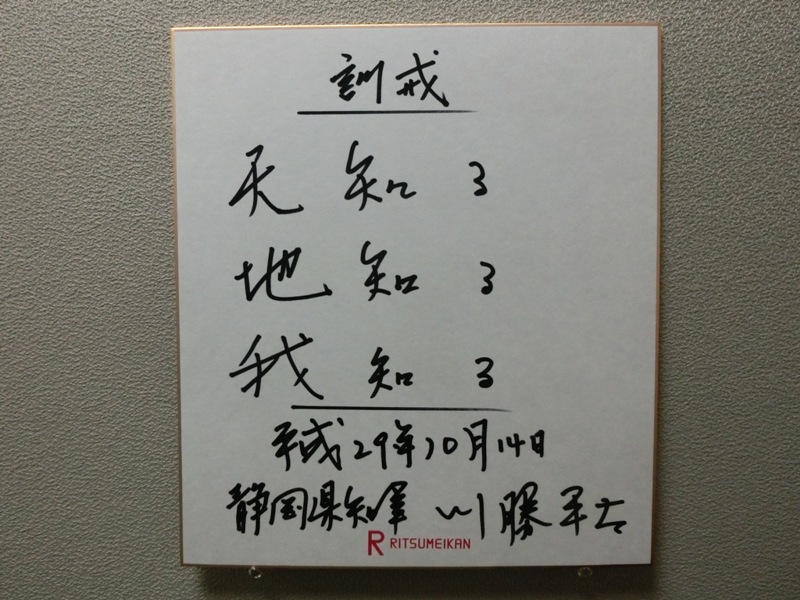 訓戒
天知る
地知る
我知る
平成29年10月14日
静岡県知事 川勝平太
R RITSUMEIKAN